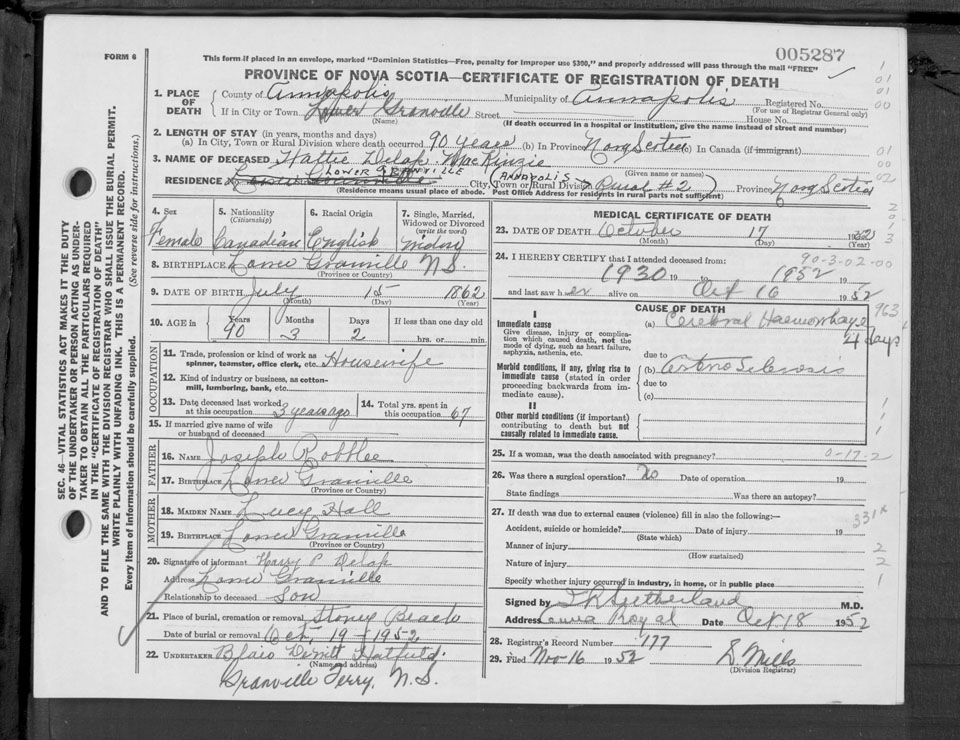 FORM 6
005287
This form if placed in an envelope, marked "Dominion Statistics—Free, penalty for improper use $300," and properly addressed will pass through the mail "FREE"
PROVINCE OF NOVA SCOTIA—CERTIFICATE OF REGISTRATION OF DEATH
SEC. 46—VITAL STATISTICS ACT MAKES IT THE DUTY
OF THE UNDERTAKER OR PERSON ACTING AS UNDER-
TAKER TO OBTAIN ALL THE PARTICULARS REQUIRED
IN THE "CERTIFICATE OF REGISTRATION OF DEATH"
AND TO FILE THE SAME WITH THE DIVISION REGISTRAR WHO SHALL ISSUE THE BURIAL PERMIT.
WRITE PLAINLY WITH UNFADING INK. THIS IS A PERMANENT RECORD.
Every item of information should be carefully supplied. (See reverse side for instructions.)
1. PLACE OF DEATH County of Annapolis Municipality of Annapolis Registered No.
(For use of Registrar General only)
If in City or Town Lower Granville Street House No.
(Name) (If death occurred in a hospital or institution, give the name instead of street and number)
2. LENGTH OF STAY (in years, months and days)
(a) In City, Town or Rural Division where death occurred 90 years (b) In Province Nova Scotia (c) In Canada (if immigrant)
3. NAME OF DECEASED Hattie Delap MacKinzie
LOWER GRANVILLE (ANNAPOLIS (Given name or names)
RESIDENCE City, Town or Rural Division Rural #2) Province Nova Scotia
(Residence means usual place of abode. Post Office Address for residents in rural parts not sufficient)
4. Sex 5. Nationality (Citizenship) 6. Racial Origin 7. Single, Married, Widowed or Divorced (write the word)
Female Canadian English Widow
8. BIRTHPLACE Lower Granville N.S.
(Province or Country)
9. DATE OF BIRTH July 15 1862
(Month) (Day) (Year)
10. AGE in Years Months Days If less than one day old
90 3 2 hrs. or min.
OCCUPATION
11. Trade, profession or kind of work as spinner, teamster, office clerk, etc. Housewife
12. Kind of industry or business, as cotton-mill, lumbering, bank, etc.
13. Date deceased last worked at this occupation 3 years ago 14. Total yrs. spent in this occupation 67
15. If married give name of wife or husband of deceased
FATHER
16. Name Joseph Robblee
17. Birthplace Lower Granville
(Province or Country)
MOTHER
18. Maiden Name Lucy Hall
19. Birthplace Lower Granville
(Province or Country)
20. Signature of informant Harry P. Delap
Address Lower Granville
Relationship to deceased Son
21. Place of burial, cremation or removal Stoney Beach
Date of burial or removal Oct. 19 - 1952
22. UNDERTAKER Hatfield.
(Name and address)
Granville Ferry, N.S.
MEDICAL CERTIFICATE OF DEATH
23. DATE OF DEATH October 17 1952
(Month) (Day) (Year)
24. I HEREBY CERTIFY that I attended deceased from: 90-3-02-00
1930 19 to 1952 19
and last saw her alive on Oct 16 1952
CAUSE OF DEATH 963
I
Immediate cause
Give disease, injury or complication which caused death, not the mode of dying, such as heart failure, asphyxia, asthenia, etc.
(a) Cerebral Haemorrhage 4 days
due to
Morbid conditions, if any, giving rise to immediate cause (stated in order proceeding backwards from immediate cause).
(b) Arterio Sclerosis
due to
(c)
II
Other morbid conditions (if important) contributing to death but not causally related to immediate cause.
25. If a woman, was the death associated with pregnancy? 0-17-2
26. Was there a surgical operation? No Date of operation 19
State findings Was there an autopsy?
27. If death was due to external causes (violence) fill in also the following:— 331x
Accident, suicide or homicide? Date of injury 19
(State which)
Manner of injury
(How sustained)
Nature of injury
Specify whether injury occurred in industry, in home, or in public place
Signed by Sutherland M.D.
Address Anna Royal Date Oct 18 1952
28. Registrar's Record Number 177
29. Filed Nov 16 1952 S. Mills
(Division Registrar)